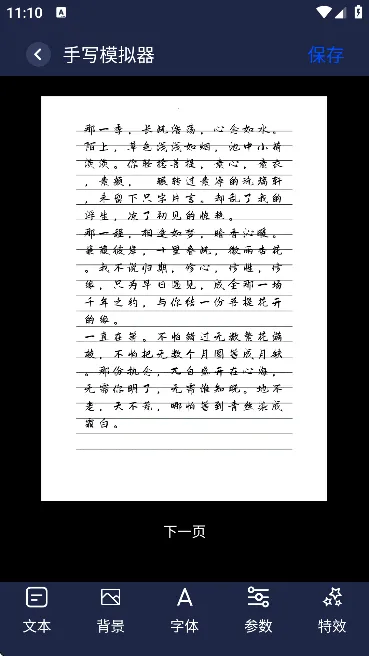 11:10
A
手写模拟器
保存
那一季,长风浩荡,心念如水。
陌上,草色浅浅如烟,池中小荷
淡淡。你轻捻菩提,素心,素衣
,素颜,
,未留下只字片言。却乱了我的
浮生,凉了初见的惊艳。
那一程,相逢如梦,暗香沁暖。
蒹葭彼岸,十里春风,微雨杏花
。我不说归期,修心,修性,修
缘,只为早日遇见,成全那一场
千年之约,与你结一份菩提花开
的缘。
一直在等。不怕错过无数繁花满
枝,不怕把无数个月圆等成月缺
。那份执念,兀自盛开在心海,
无需你明了,无需谁知晓。地不
老,天不荒,哪怕等到青丝染成
霜白。
下一页
文本
背景
字体
参数
特效